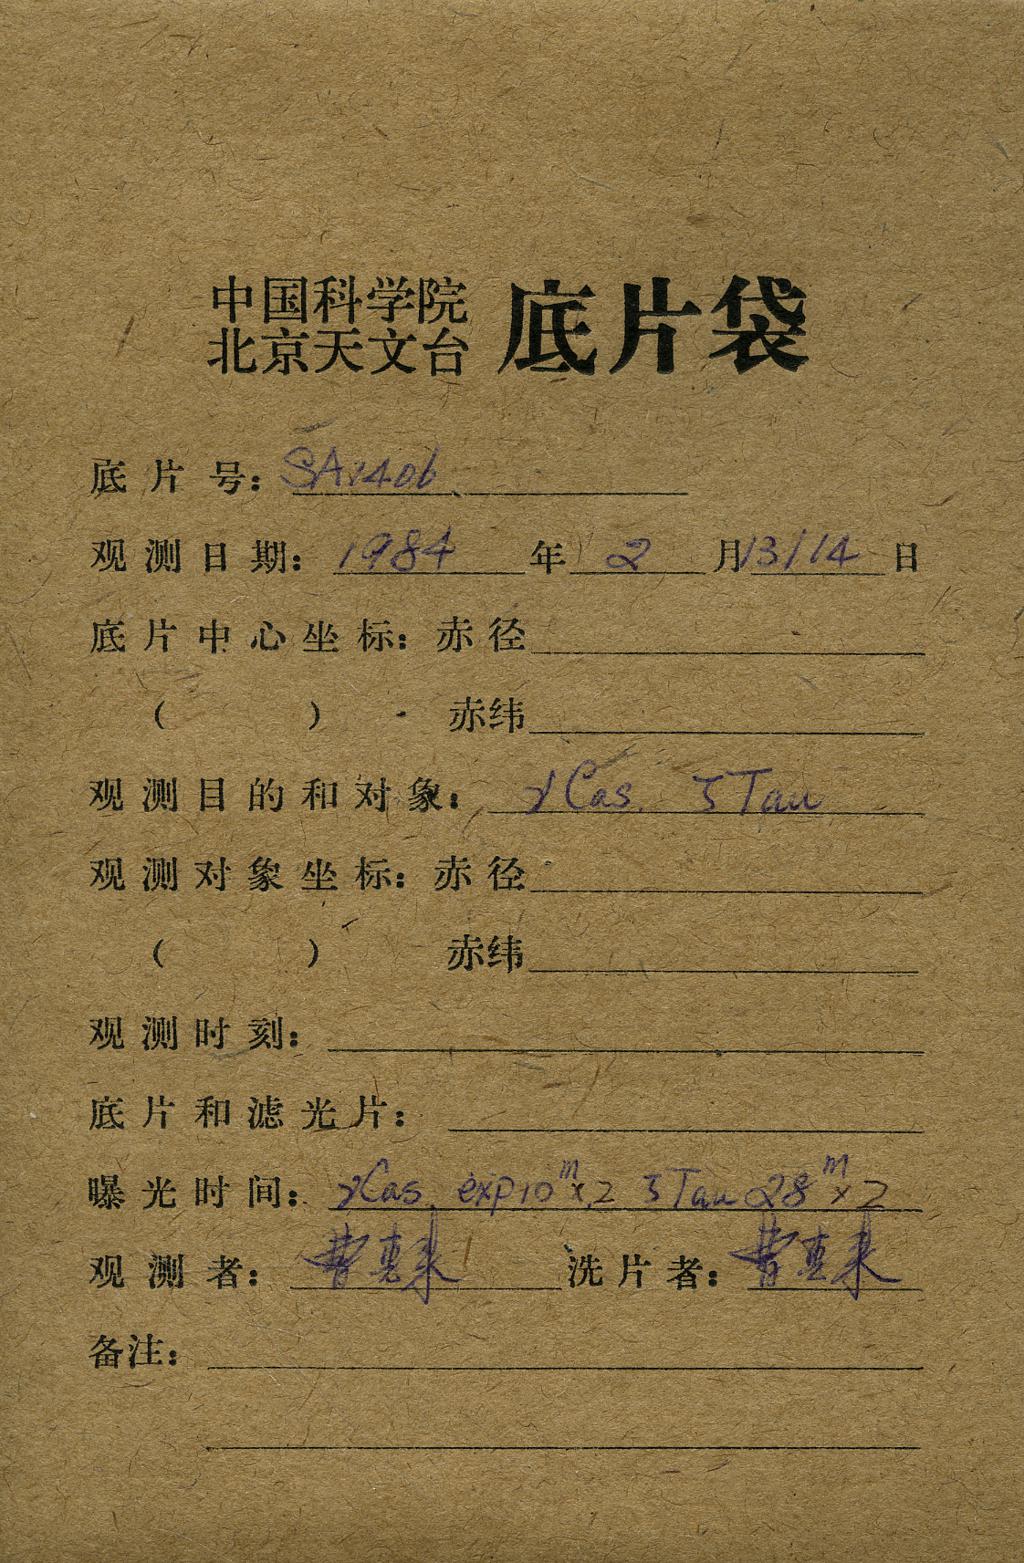 中国科学院
北京天文台 底片袋
底片号： SA1406
观测日期： 1984 年 2 月 13/14 日
底片中心坐标：赤径
（ ） 赤纬
观测目的和对象： γ Cas. ζ Tau
观测对象坐标：赤径
（ ） 赤纬
观测时刻：
底片和滤光片：
曝光时间： γ Cas. exp 10ᵐ×2 ζ Tau 28ᵐ×2
观测者： 曹惠来 洗片者： 曹惠来
备注：